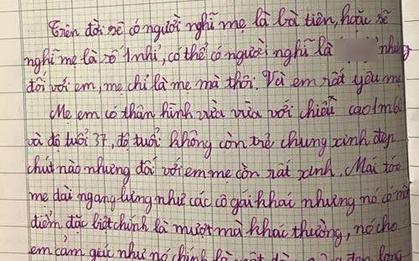 Trên đời sẽ có người nghĩ mẹ là bà tiên, hoặc sẽ
nghĩ mẹ là số 1 nhỉ, có thể có người nghĩ là nhưng
đối với em, mẹ chỉ là mẹ mà thôi. Và em rất yêu mẹ
Mẹ em có thân hình vừa vừa với chiều cao 1m6
và độ tuổi 37, độ tuổi không còn trẻ chung xinh đẹp
chút nào nhưng đối với em mẹ còn rất xinh. Mái tóc
mẹ dài ngang lưng như các cô gái khác nhưng nó có một
điểm đặc biệt chính là mượt mà khác thường, nó cho
em cảm giác như nó chính là một